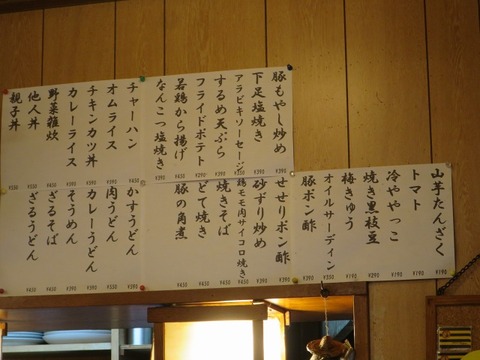 豚もやし炒め
下足塩焼き
アラビキソーセージ
するめ天ぷら
フライドポテト
若鶏から揚げ
なんこつ塩焼き
チャーハン
オムライス
チキンカツ丼
カレーライス
野菜雑炊
他人丼
親子丼
山芋たんざく
トマト
冷ややっこ
焼き黒枝豆
梅きゅう
オイルサーディン
豚ポン酢
せせりポン酢
砂ずり炒め
鶏モモ肉サイコロ焼き
焼きそば
どて焼き
豚の角煮
かすうどん
肉うどん
カレーうどん
そうめん
ざるそば
ざるうどん